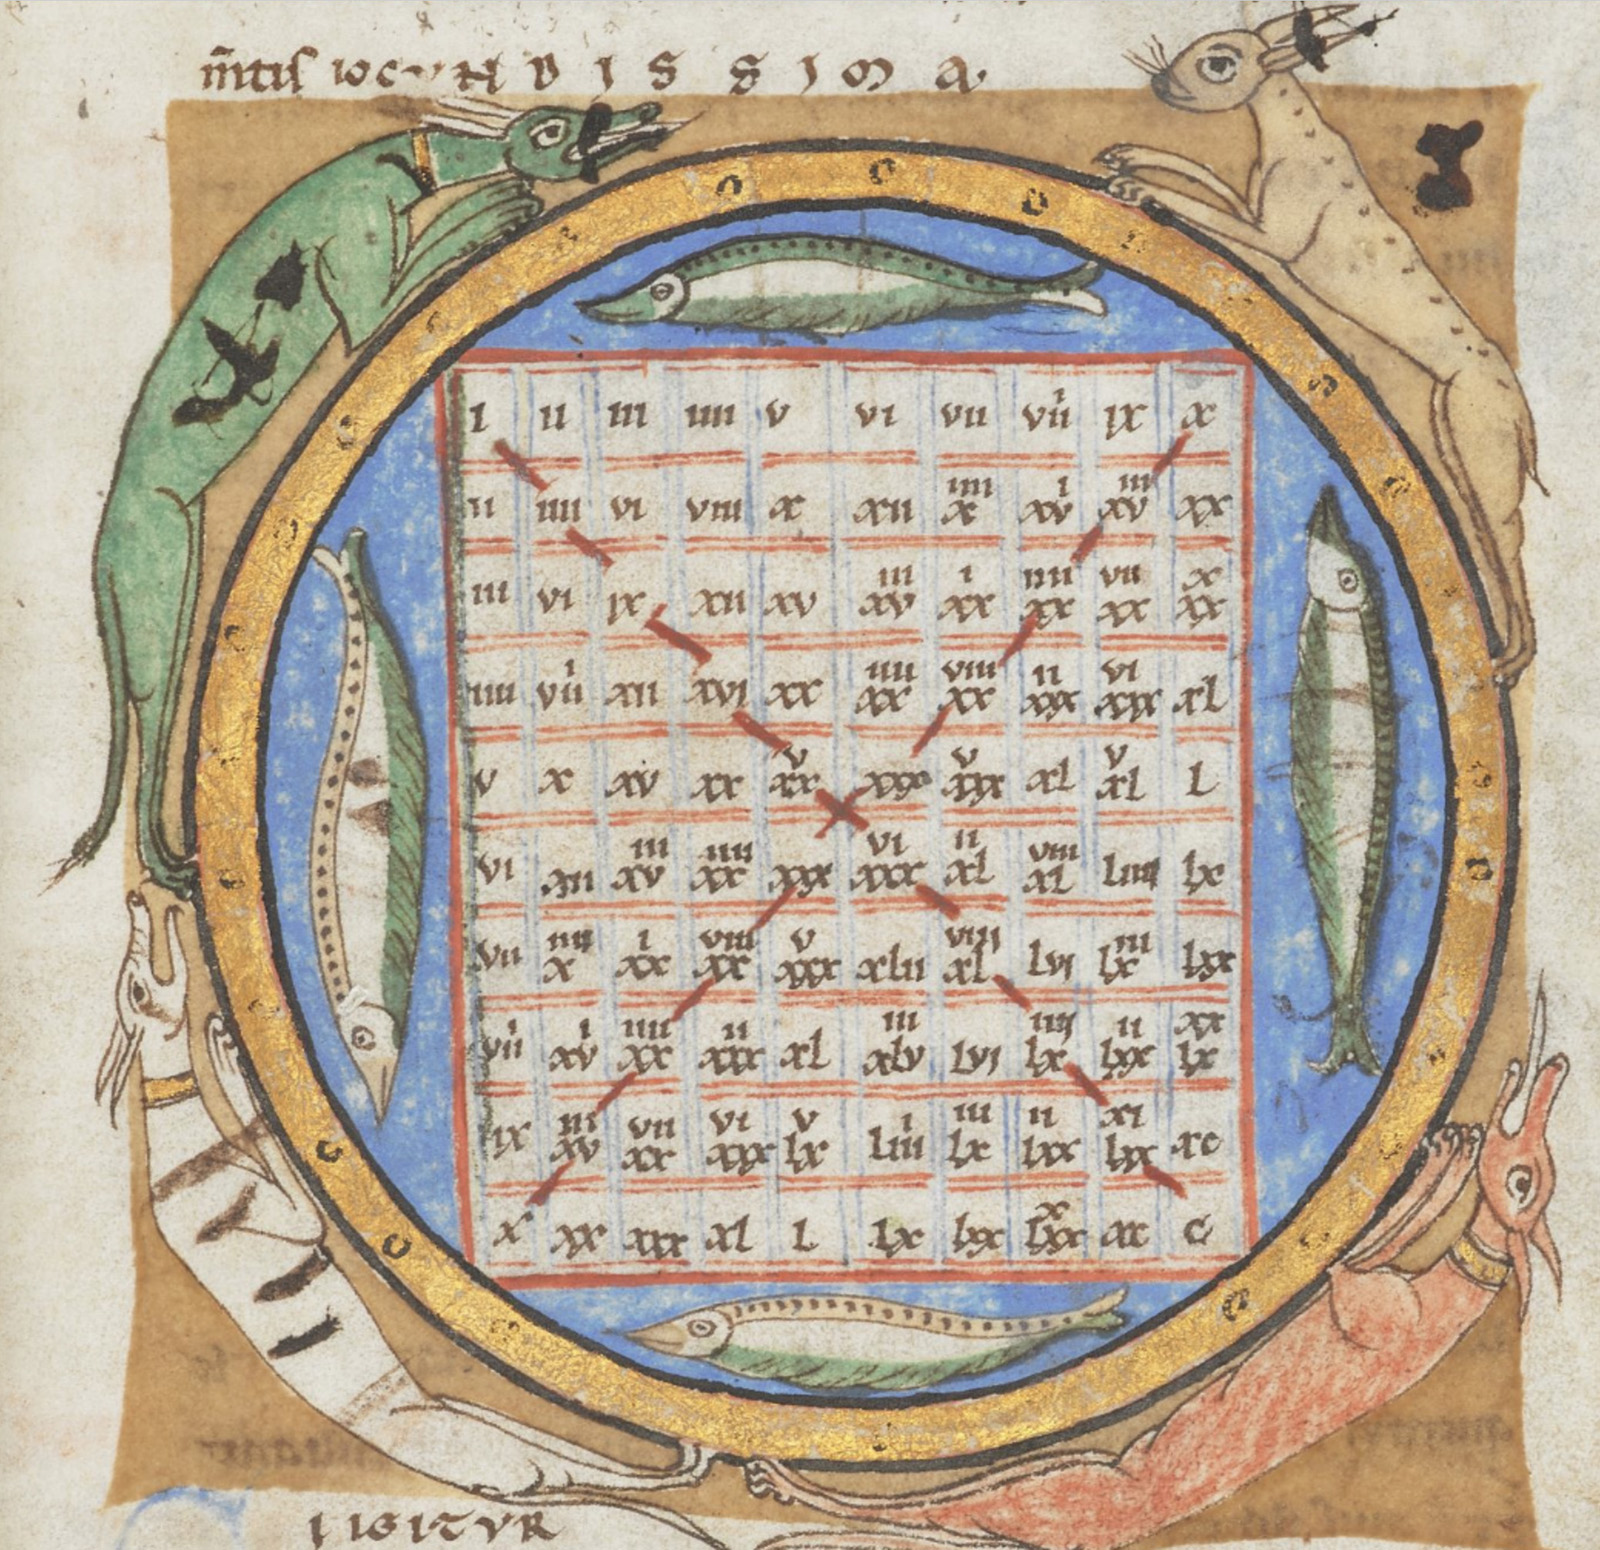 m̄tis iocuNDISSIMA
I ii iii iiii v vi vii viii ix x
ii iiii vi viii x xii xiiii xvi xviii xx
iii vi ix xii xv xviii xxi xxiiii xxvii xxx
iiii viii xii xvi xx xxiiii xxviii xxxii xxxvi xl
v x xv xx xxv xxx xxxv xl xlv L
vi xii xviii xxiiii xxx xxxvi xlii xlviii Liiii lx
vii xiiii xxi xxviii xxxv xlii xlviiii Lvi lxiii lxx
viii xvi xxiiii xxxii xl xlviii Lvi lxiiii lxxii lxxx
ix xviii xxvii xxxvi lxv Liiii lxiii lxxii lxxxi xc
x xx xxx xl L Lx lxx lxxx xc C
IIGITVR